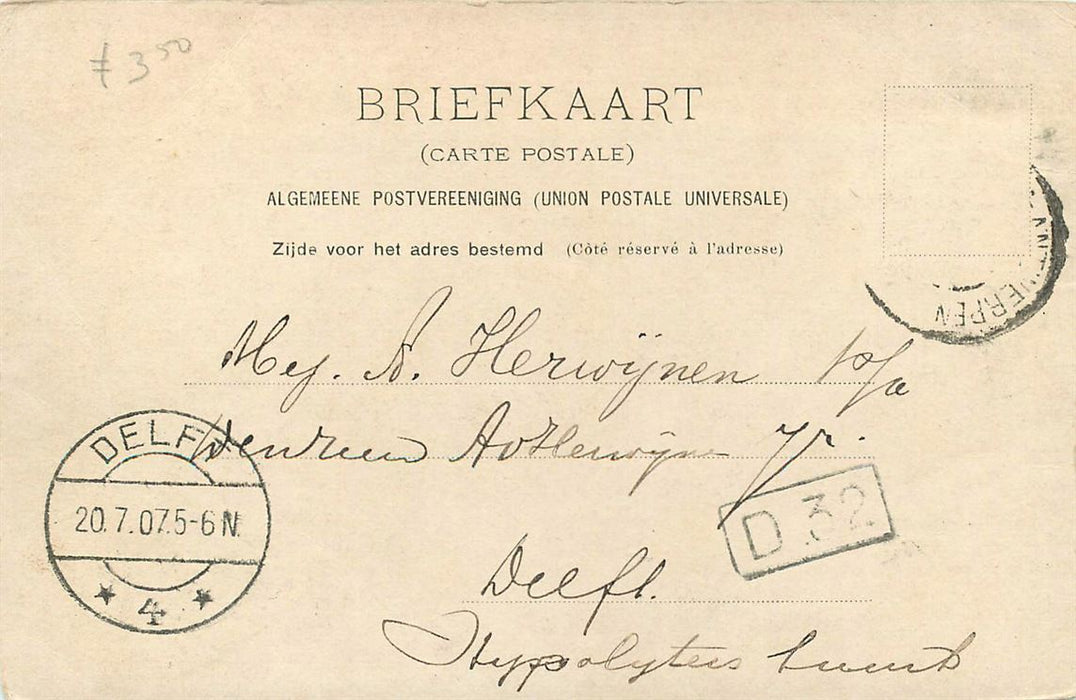 3⁵⁰
BRIEFKAART
(CARTE POSTALE)
ALGEMEENE POSTVEREENIGING (UNION POSTALE UNIVERSALE)
Zijde voor het adres bestemd (Côté réservé à l'adresse)
ANTWERPEN
Mej. A. Herwijnen p/a
Jr.
DELFT
20.7.07.5-6N.
4
D.32
Delft.
Hyppolytus buurt